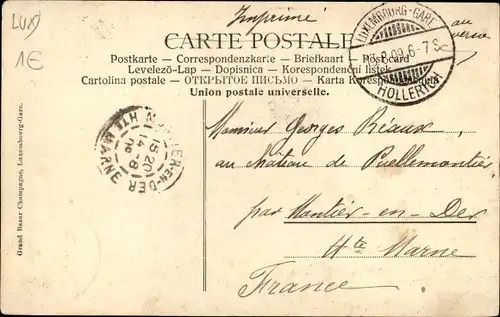 LUX)
1€
Imprimé
au
verso
CARTE POSTALE
Postkarte - Correspondenzkarte - Briefkaart - Postcard
Levelező-Lap - Dopisnica - Korespondenční lístek
Cartolina postale - ОТКРЫТОЕ ПИСЬМО - Karta Korespondencyjna
Union postale universelle.
LUXEMBOURG-GARE
8.09.6-7S
HOLLERICH
MONTIER-EN-DER
15 20
14 - 8
09
HTE MARNE
Monsieur Georges Réaux
au château de Puellemontier
par Montier-en-Der
Hte Marne
France
Grand Bazar Champagne, Luxembourg-Gare.